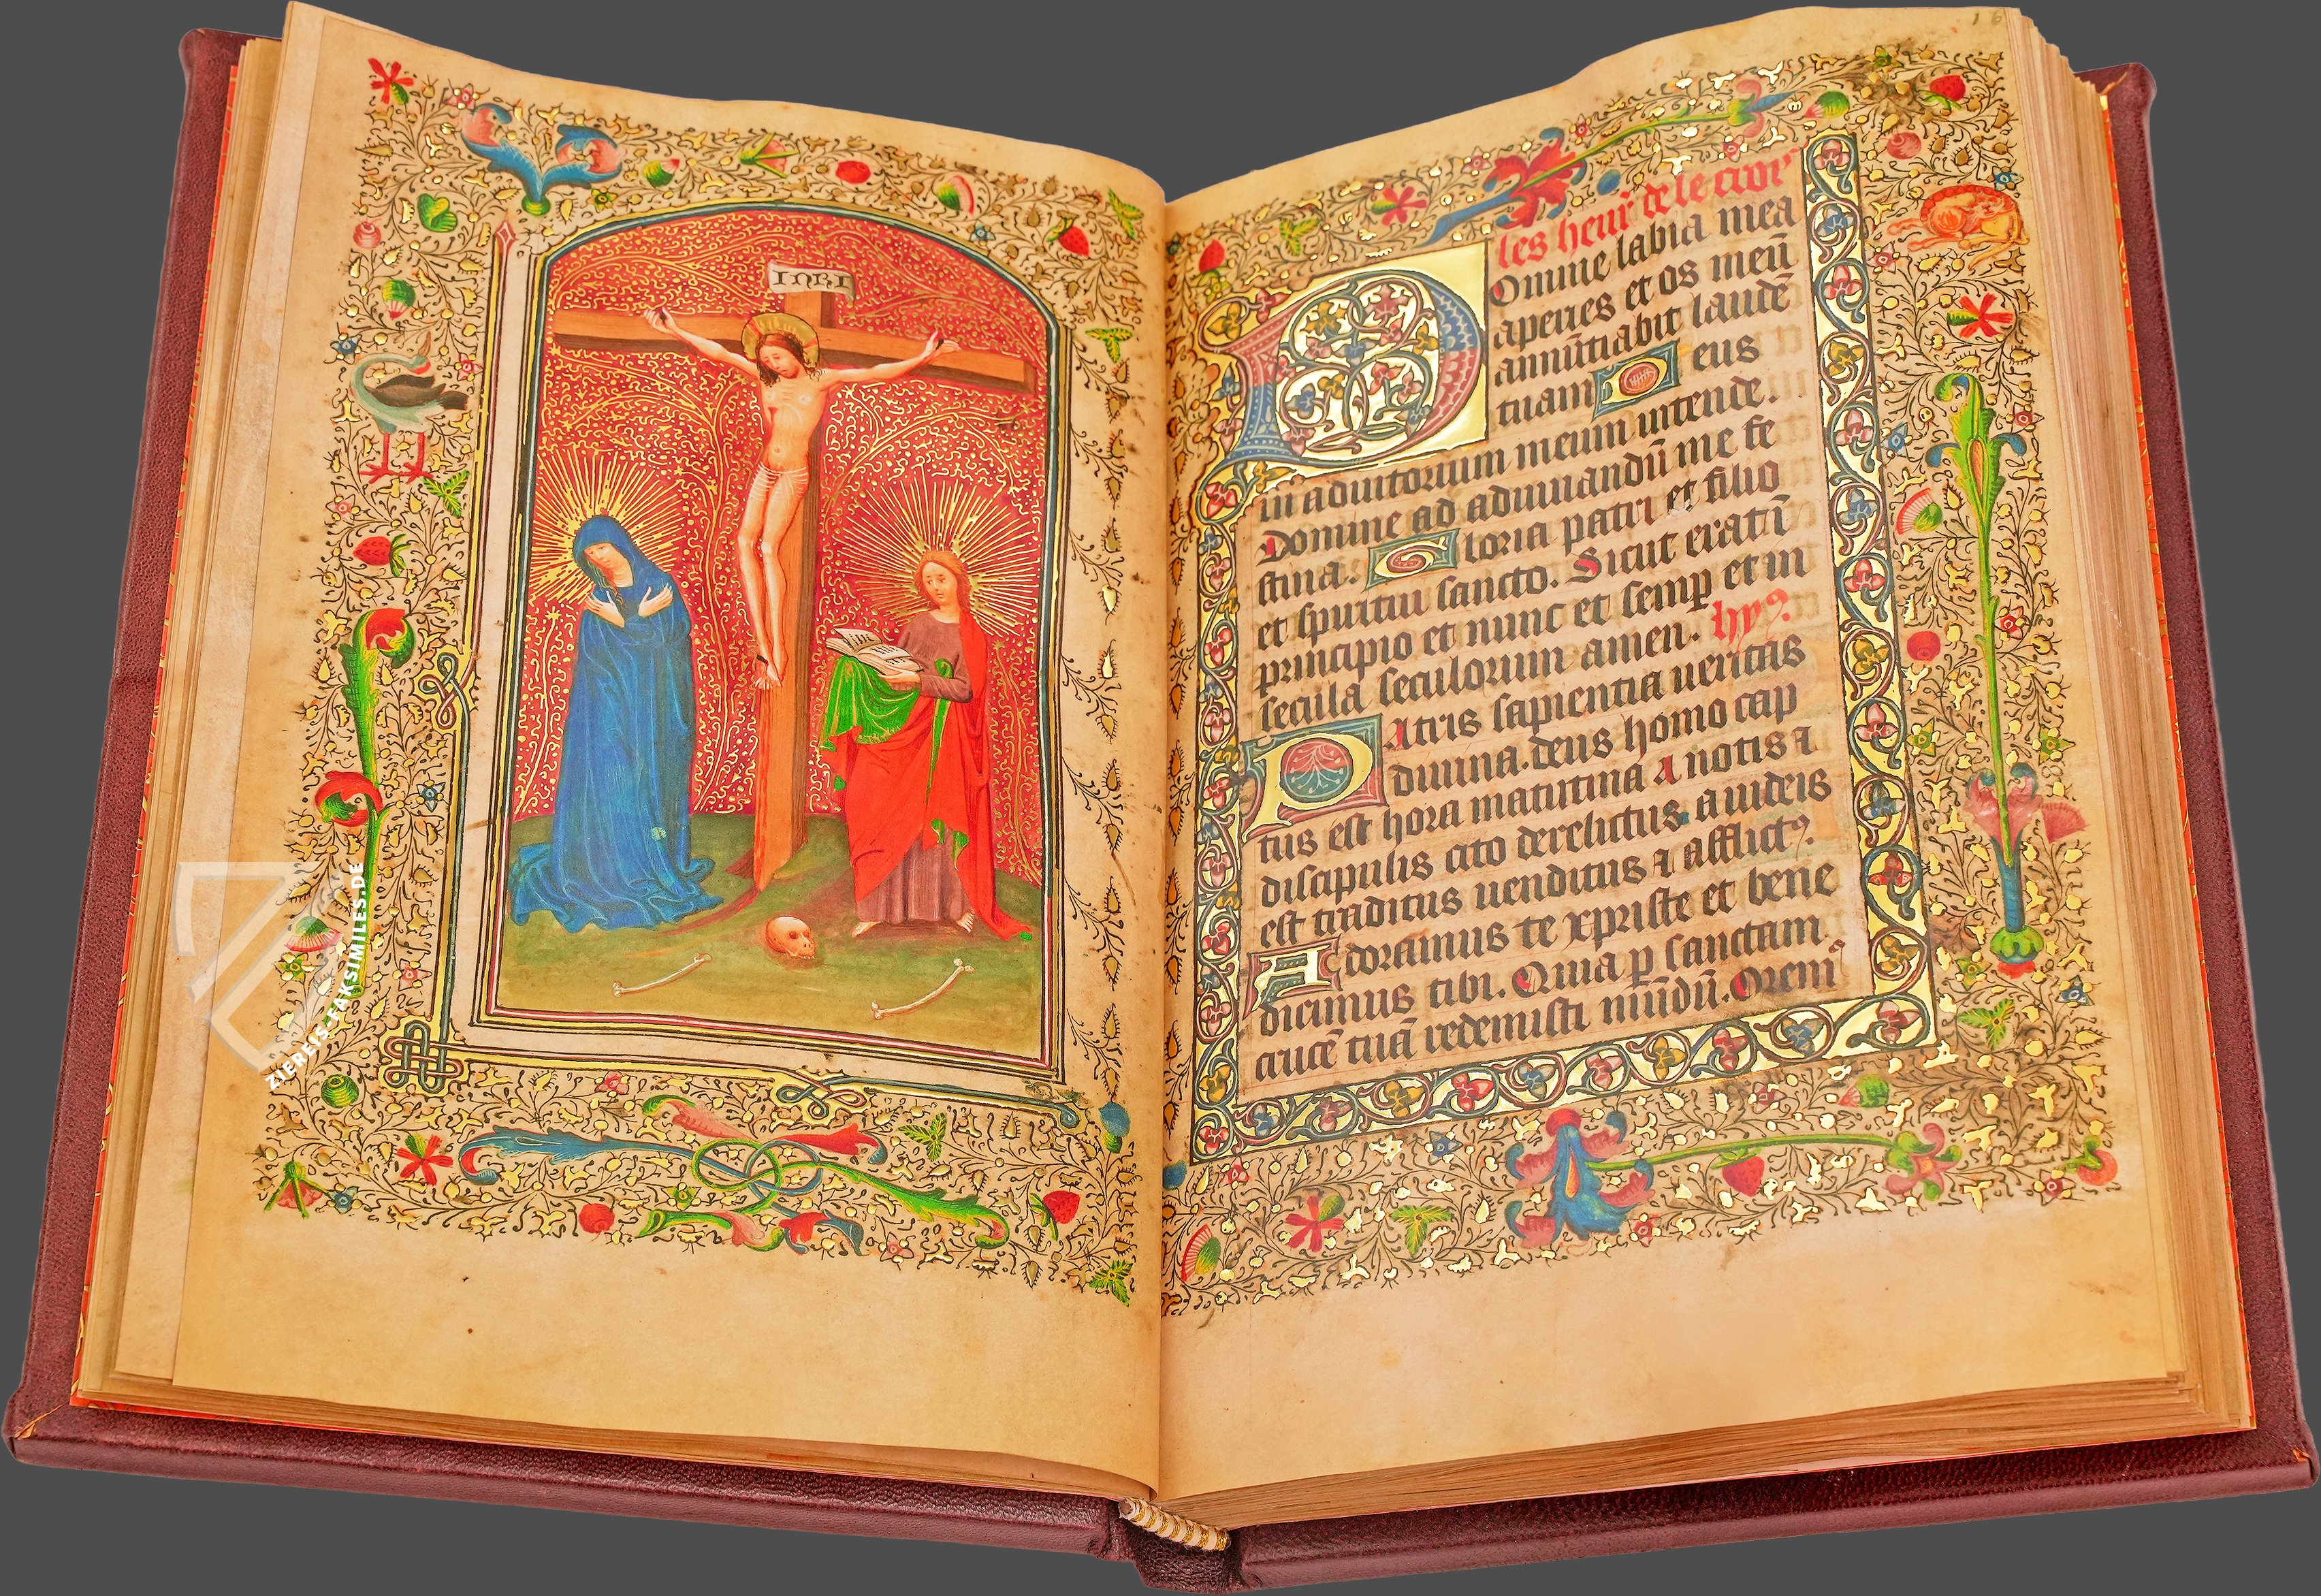 INRI
16
les heur de le croix
Domine labia mea
aperies et os meū
annūtiabit laudē
tuam Deus
in adiutorium meum intende.
Domine ad adiuuandū me fe
stina. Gloria patri et filio
et spiritui sancto. Sicut erat ī
principio et nunc et semp et in
secula seculorum amen. hyꝰ
Patris sapientia ueritas
diuina. deus homo cap
tus est hora matutina A notis ⁊
discipulis cito derelictus a iudeis
est traditus uenditus ⁊ afflictꝰ.
Adoramus te xpriste et bene
dicimus tibi. Quia p sanctam
crucē tuā redemisti mūdū. Oremꝰ
ZIEREIS-FAKSIMILES.DE